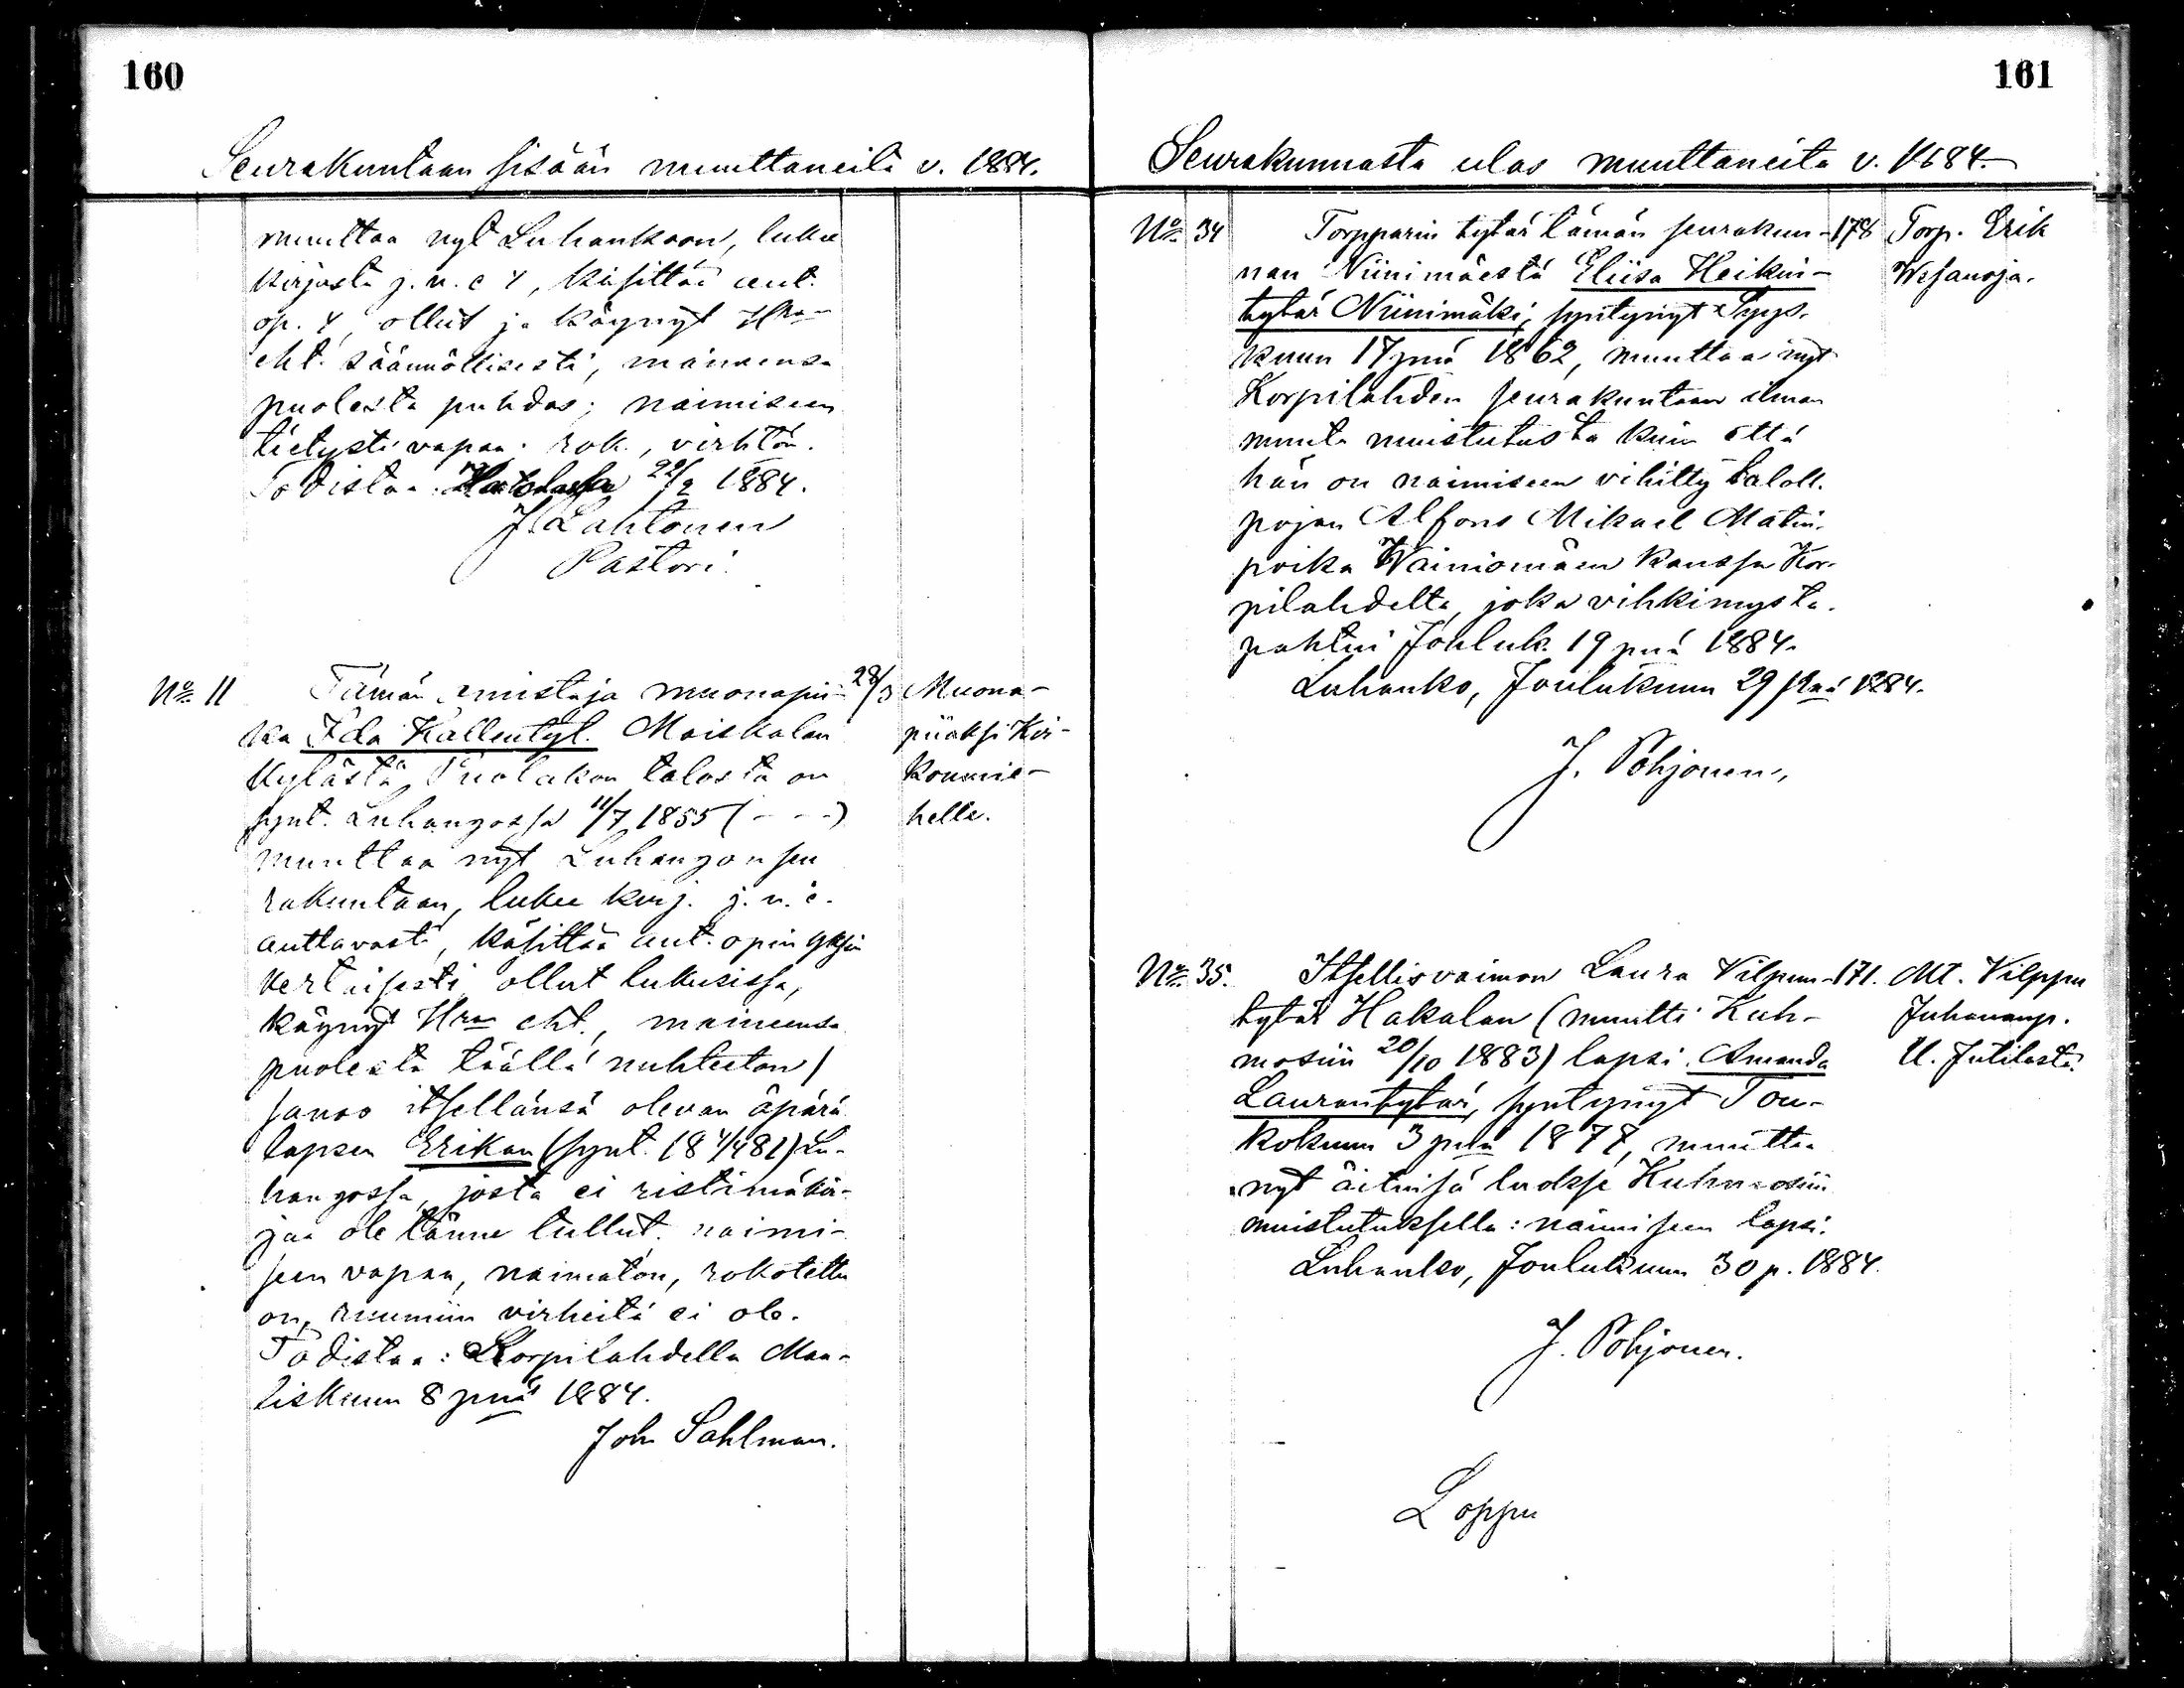 160
Seurakuntaan sisään muuttaneita v. 1884.
muuttaa nyt Luhankoon, lukee
kirjasta j. n. e 4, käsittää aut.
op. 4, ollut ja käynyt Hran
eht. säännöllisesti, maineensa
puolesta puhdas; naimiseen
tietysti vapaa. rok., virhtön.
Todistaa 22/2 1884.
J. Lahtonen
Pastori.
No 11 Tämän omistaja muonapii- 28/3 Muona-
ka Ida Kallentyt. Moiskalan piiaksi Kir-
Kylästä, Puolakan talosta on konmie-
synt. Luhangossa 11/7 1855 (- - -) helle.
muuttaa nyt Luhangon seu
rakuntaan, lukee kirj. j. n. e.
auttavasti, käsittää aut. opin yksin
kertaisesti ollut lukusissa,
käynyt Hran eht., maineensa
puolesta täällä nuhteeton/
sanoo itsellänsä olevan äpärä
lapsen Erikan (synt. 18 4/4 81) Lu-
hangossa, josta ei ristimäkir-
jaa ole tänne tullut. naimi-
seen vapaa, naimatön, rokotettu
on, ruumiin virheitä ei ole.
Todistaa: Korpilahdella Maa-
liskuun 8 pnä 1884.
Joh. Sahlman.
161
Seurakunnasta ulos muuttaneita v. 1884.
No 34 Torpparin tytär tämän seurakun- 178 Torp. Erik
nan Niinimäestä Eliisa Heikin- Wesanoja.
tytär Niinimäki, syntynyt Syys-
kuun 17 pnä 1862, muuttaa nyt
Korpilahden seurakuntaan ilman
muuta muistutusta kuin että
hän on naimiseen vihitty taloll.
pojan Alfons Mikael Matin-
poika Wainiomäen kanssa Kor-
pilahdelta, joka vihkimys ta-
pahtui Jouluk. 19 pnä 1884.
Luhanko, Joulukuun 29 pnä 1884.
J. Pohjonen.
No 35. Itsellisvaimon Laura Vilpun- 171. Mt. Vilppu
tytär Hakalan (muutti Kuh- Juhananp.
mosiin 20/10 1883) lapsi Amanda U. Jutilasta
Laurantytär, syntynyt Tou-
kokuun 3 pnä 1878, muuttaa
nyt äitinsä luokse Kuhmosiin
muistutuksella: naimiseen lapsi.
Luhanko, Joulukuun 30 p. 1884.
J. Pohjonen.
Loppu